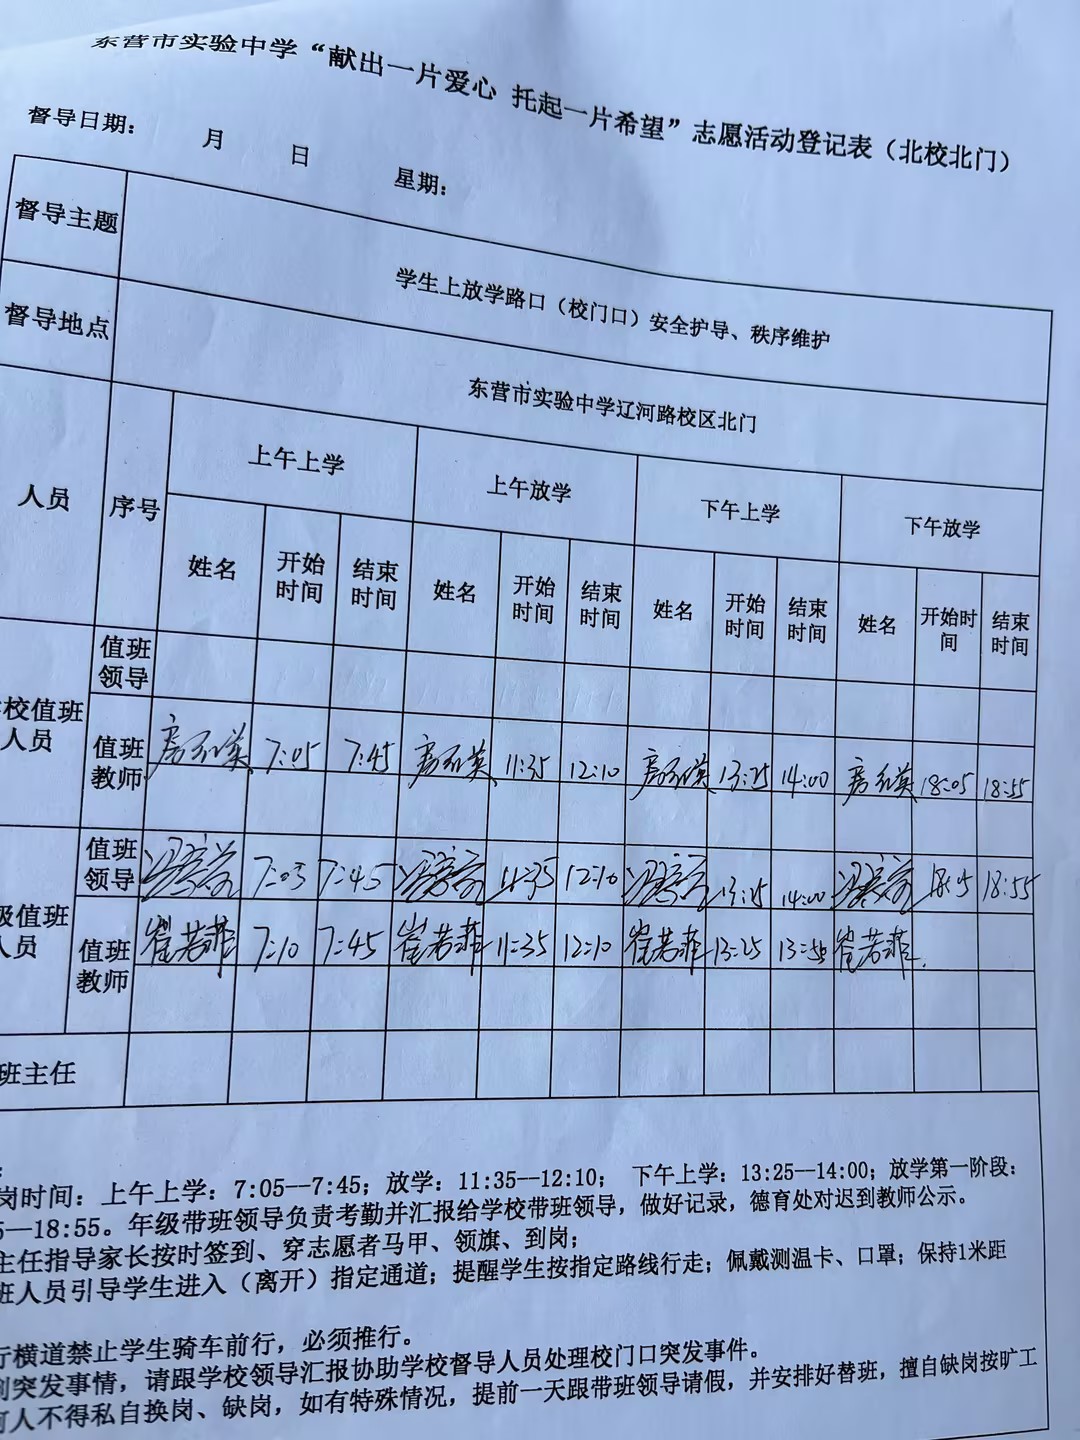 东营市实验中学“献出一片爱心 托起一片希望”志愿活动登记表（北校北门）
督导日期： 月 日 星期：
督导主题 学生上放学路口（校门口）安全护导、秩序维护
督导地点 东营市实验中学辽河路校区北门
人员 序号 上午上学 上午放学 下午上学 下午放学
姓名 开始时间 结束时间 姓名 开始时间 结束时间 姓名 开始时间 结束时间 姓名 开始时间 结束时间
校值班人员 值班领导
值班教师 7:05 7:45 11:35 12:10 13:25 14:00 18:05 18:55
级值班人员 值班领导 7:05 7:45 11:35 12:10 13:25 14:00 18:05 18:55
值班教师 崔若菲 7:10 7:45 崔若菲 11:35 12:10 崔若菲 13:25 13:55 崔若菲
班主任
岗时间：上午上学：7:05--7:45；放学：11:35--12:10； 下午上学：13:25--14:00；放学第一阶段：
5--18:55。年级带班领导负责考勤并汇报给学校带班领导，做好记录，德育处对迟到教师公示。
主任指导家长按时签到、穿志愿者马甲、领旗、到岗；
班人员引导学生进入（离开）指定通道；提醒学生按指定路线行走；佩戴测温卡、口罩；保持1米距
行横道禁止学生骑车前行，必须推行。
到突发事情，请跟学校领导汇报协助学校督导人员处理校门口突发事件。
何人不得私自换岗、缺岗，如有特殊情况，提前一天跟带班领导请假，并安排好替班，擅自缺岗按旷工